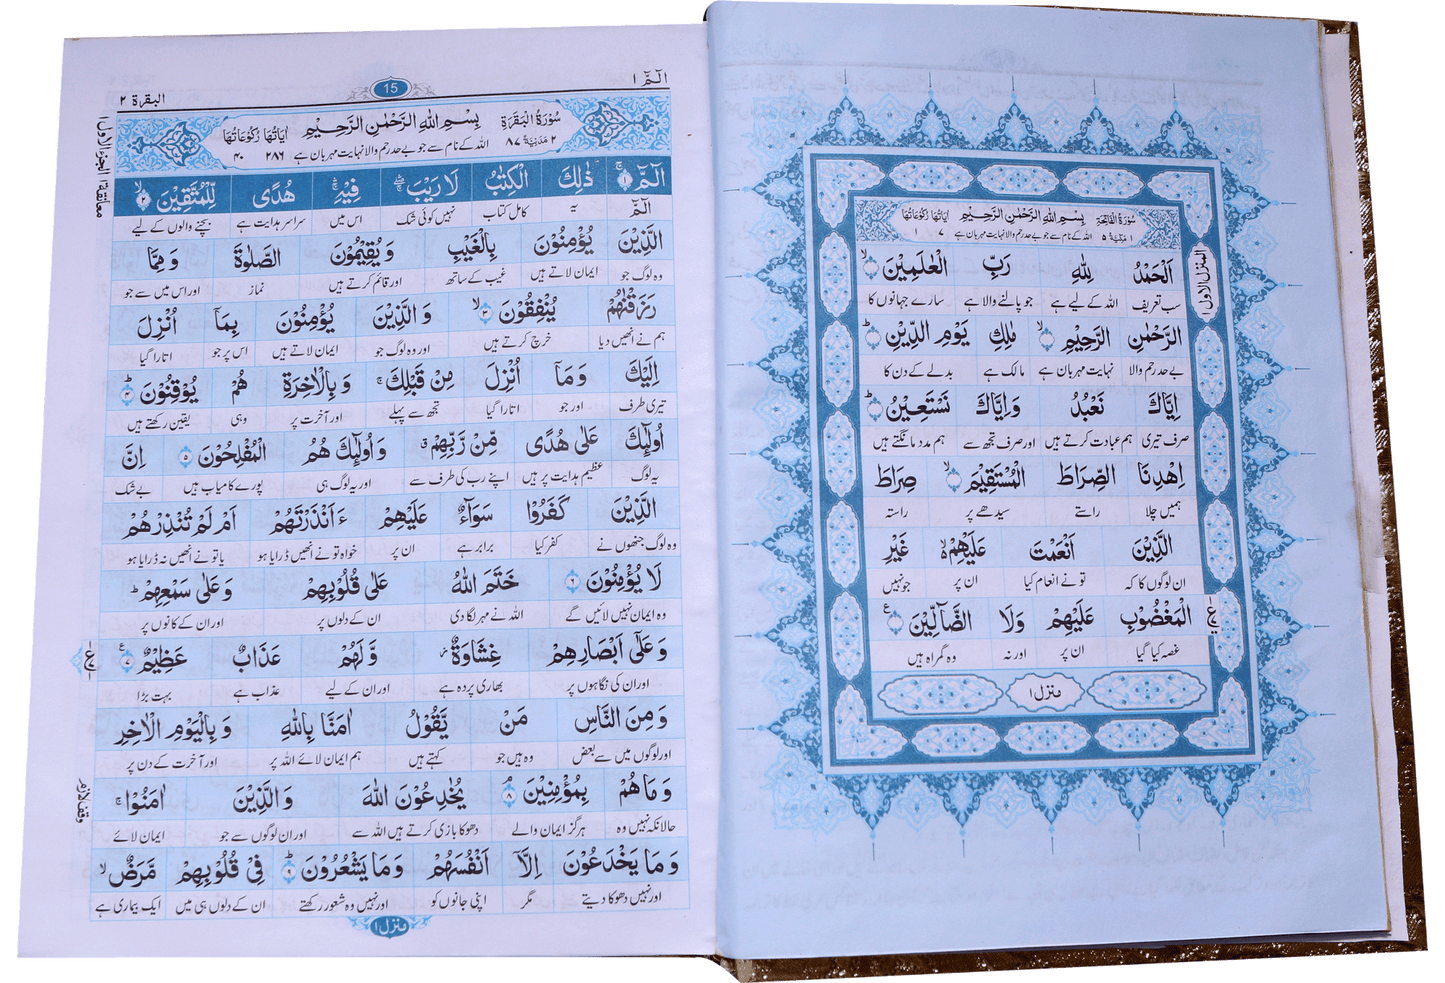 سُوْرَةُ الْفَاتِحَةِ بِسْمِ اللّٰهِ الرَّحْمٰنِ الرَّحِيْمِ اٰيَاتُهَا رُكُوْعَاتُهَا
١ مَكِّيَّةٌ ٥ اللہ کے نام سے جو بے حد رحم والا نہایت مہربان ہے ٧ ١
المنزل الاول
اَلْحَمْدُ لِلّٰهِ رَبِّ الْعٰلَمِيْنَ ۙ‏﴿۱﴾
سب تعریف اللہ کے لیے ہے جو پالنے والا ہے سارے جہانوں کا
الرَّحْمٰنِ الرَّحِيْمِ ۙ‏﴿۲﴾ مٰلِكِ يَوْمِ الدِّيْنِ ؕ‏﴿۳﴾
بے حد رحم والا نہایت مہربان ہے مالک ہے بدلے کے دن کا
اِيَّاكَ نَعْبُدُ وَاِيَّاكَ نَسْتَعِيْنُ ؕ‏﴿۴﴾
صرف تیری ہم عبادت کرتے ہیں اور صرف تجھ سے ہم مدد مانگتے ہیں
اِهْدِنَا الصِّرَاطَ الْمُسْتَقِيْمَ ۙ‏﴿۵﴾ صِرَاطَ
ہمیں چلا راستے سیدھے پر راستہ
الَّذِيْنَ اَنْعَمْتَ عَلَيْهِمْ ۙ غَيْرِ
ان لوگوں کا کہ تو نے انعام کیا ان پر جو نہیں
الْمَغْضُوْبِ عَلَيْهِمْ وَلَا الضَّآلِّيْنَ ‏﴿۷﴾
غصہ کیا گیا ان پر اور نہ وہ گمراہ ہیں
منزل ١
الٓمّٓ ١ 15 البقرة ٢
سُوْرَةُ الْبَقَرَةِ بِسْمِ اللّٰهِ الرَّحْمٰنِ الرَّحِيْمِ اٰيَاتُهَا رُكُوْعَاتُهَا
٢ مَدَنِيَّةٌ ٨٧ اللہ کے نام سے جو بے حد رحم والا نہایت مہربان ہے ٢٨٦ ٤٠
معانقة ١ الجزء الاول ١
الٓمّٓ ۚ‏﴿۱﴾ ذٰلِكَ الْكِتٰبُ لَا رَيْبَ ۛۖ فِيْهِ ۛۚ هُدًى لِّلْمُتَّقِيْنَ ۙ‏﴿۲﴾
الٓمّٓ یہ کامل کتاب نہیں کوئی شک اس میں سراسر ہدایت ہے بچنے والوں کے لیے
الَّذِيْنَ يُؤْمِنُوْنَ بِالْغَيْبِ وَيُقِيْمُوْنَ الصَّلٰوةَ وَمِمَّا
وہ لوگ جو ایمان لاتے ہیں غیب کے ساتھ اور قائم کرتے ہیں نماز اور اس میں سے جو
رَزَقْنٰهُمْ يُنْفِقُوْنَ ۙ‏﴿۳﴾ وَالَّذِيْنَ يُؤْمِنُوْنَ بِمَآ اُنْزِلَ
ہم نے انھیں دیا خرچ کرتے ہیں اور وہ لوگ جو ایمان لاتے ہیں اس پر جو اتارا گیا
اِلَيْكَ وَمَآ اُنْزِلَ مِنْ قَبْلِكَ ۚ وَبِالْاٰخِرَةِ هُمْ يُوْقِنُوْنَ ؕ‏﴿۴﴾
تیری طرف اور جو اتارا گیا تجھ سے پہلے اور آخرت پر وہی یقین رکھتے ہیں
اُولٰٓئِكَ عَلٰى هُدًى مِّنْ رَّبِّهِمْ ۗ وَاُولٰٓئِكَ هُمُ الْمُفْلِحُوْنَ ‏﴿۵﴾ اِنَّ
یہ لوگ عظیم ہدایت پر ہیں اپنے رب کی طرف سے اور یہ لوگ ہی پورے کامیاب ہیں بے شک
الَّذِيْنَ كَفَرُوْا سَوَآءٌ عَلَيْهِمْ ءَاَنْذَرْتَهُمْ اَمْ لَمْ تُنْذِرْهُمْ
وہ لوگ جنھوں نے کفر کیا برابر ہے ان پر خواہ تو نے انھیں ڈرایا ہو یا تو نے انھیں نہ ڈرایا ہو
لَا يُؤْمِنُوْنَ ‏﴿۶﴾ خَتَمَ اللّٰهُ عَلٰى قُلُوْبِهِمْ وَعَلٰى سَمْعِهِمْ ؕ
وہ ایمان نہیں لائیں گے اللہ نے مہر لگا دی ان کے دلوں پر اور ان کے کانوں پر
وَعَلٰٓى اَبْصَارِهِمْ غِشَاوَةٌ ۫ وَّلَهُمْ عَذَابٌ عَظِيْمٌ ‏﴿۷﴾
اور ان کی نگاہوں پر بھاری پردہ ہے اور ان کے لیے عذاب ہے بہت بڑا
وَمِنَ النَّاسِ مَنْ يَّقُوْلُ اٰمَنَّا بِاللّٰهِ وَبِالْيَوْمِ الْاٰخِرِ
اور لوگوں میں سے بعض وہ ہیں جو کہتے ہیں ہم ایمان لائے اللہ پر اور آخرت کے دن پر
وقف لازم
وَمَا هُمْ بِمُؤْمِنِيْنَ ۘ‏﴿۸﴾ يُخٰدِعُوْنَ اللّٰهَ وَالَّذِيْنَ اٰمَنُوْا ۚ
حالانکہ نہیں وہ ہرگز ایمان والے دھوکا بازی کرتے ہیں اللہ سے اور ان لوگوں سے جو ایمان لائے
وَمَا يَخْدَعُوْنَ اِلَّآ اَنْفُسَهُمْ وَمَا يَشْعُرُوْنَ ؕ‏﴿۹﴾ فِيْ قُلُوْبِهِمْ مَّرَضٌ ۙ
اور نہیں دھوکا دیتے مگر اپنی جانوں کو اور نہیں وہ شعور رکھتے ان کے دلوں ہی میں ایک بیماری ہے
منزل ١